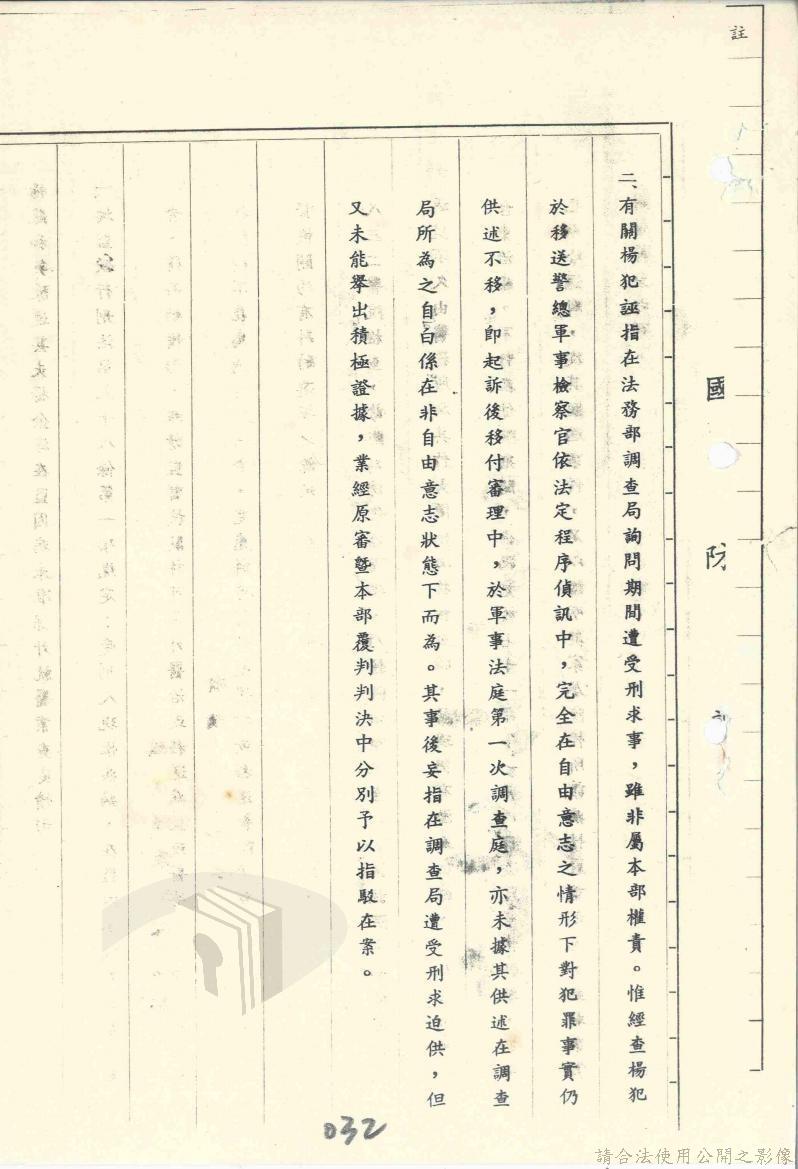 註
國防
二、有關楊犯誣指在法務部調查局詢問期間遭受刑求事，雖非屬本部權責。惟經查楊犯
於移送警總軍事檢察官依法定程序偵訊中，完全在自由意志之情形下對犯罪事實仍
供述不移，即起訴後移付審理中，於軍事法庭第一次調查庭，亦未據其供述在調查
局所為之自白係在非自由意志狀態下而為。其事後妄指在調查局遭受刑求迫供，但
又未能舉出積極證據，業經原審暨本部覆判判決中分別予以指駁在案。
032
請合法使用公開之影像